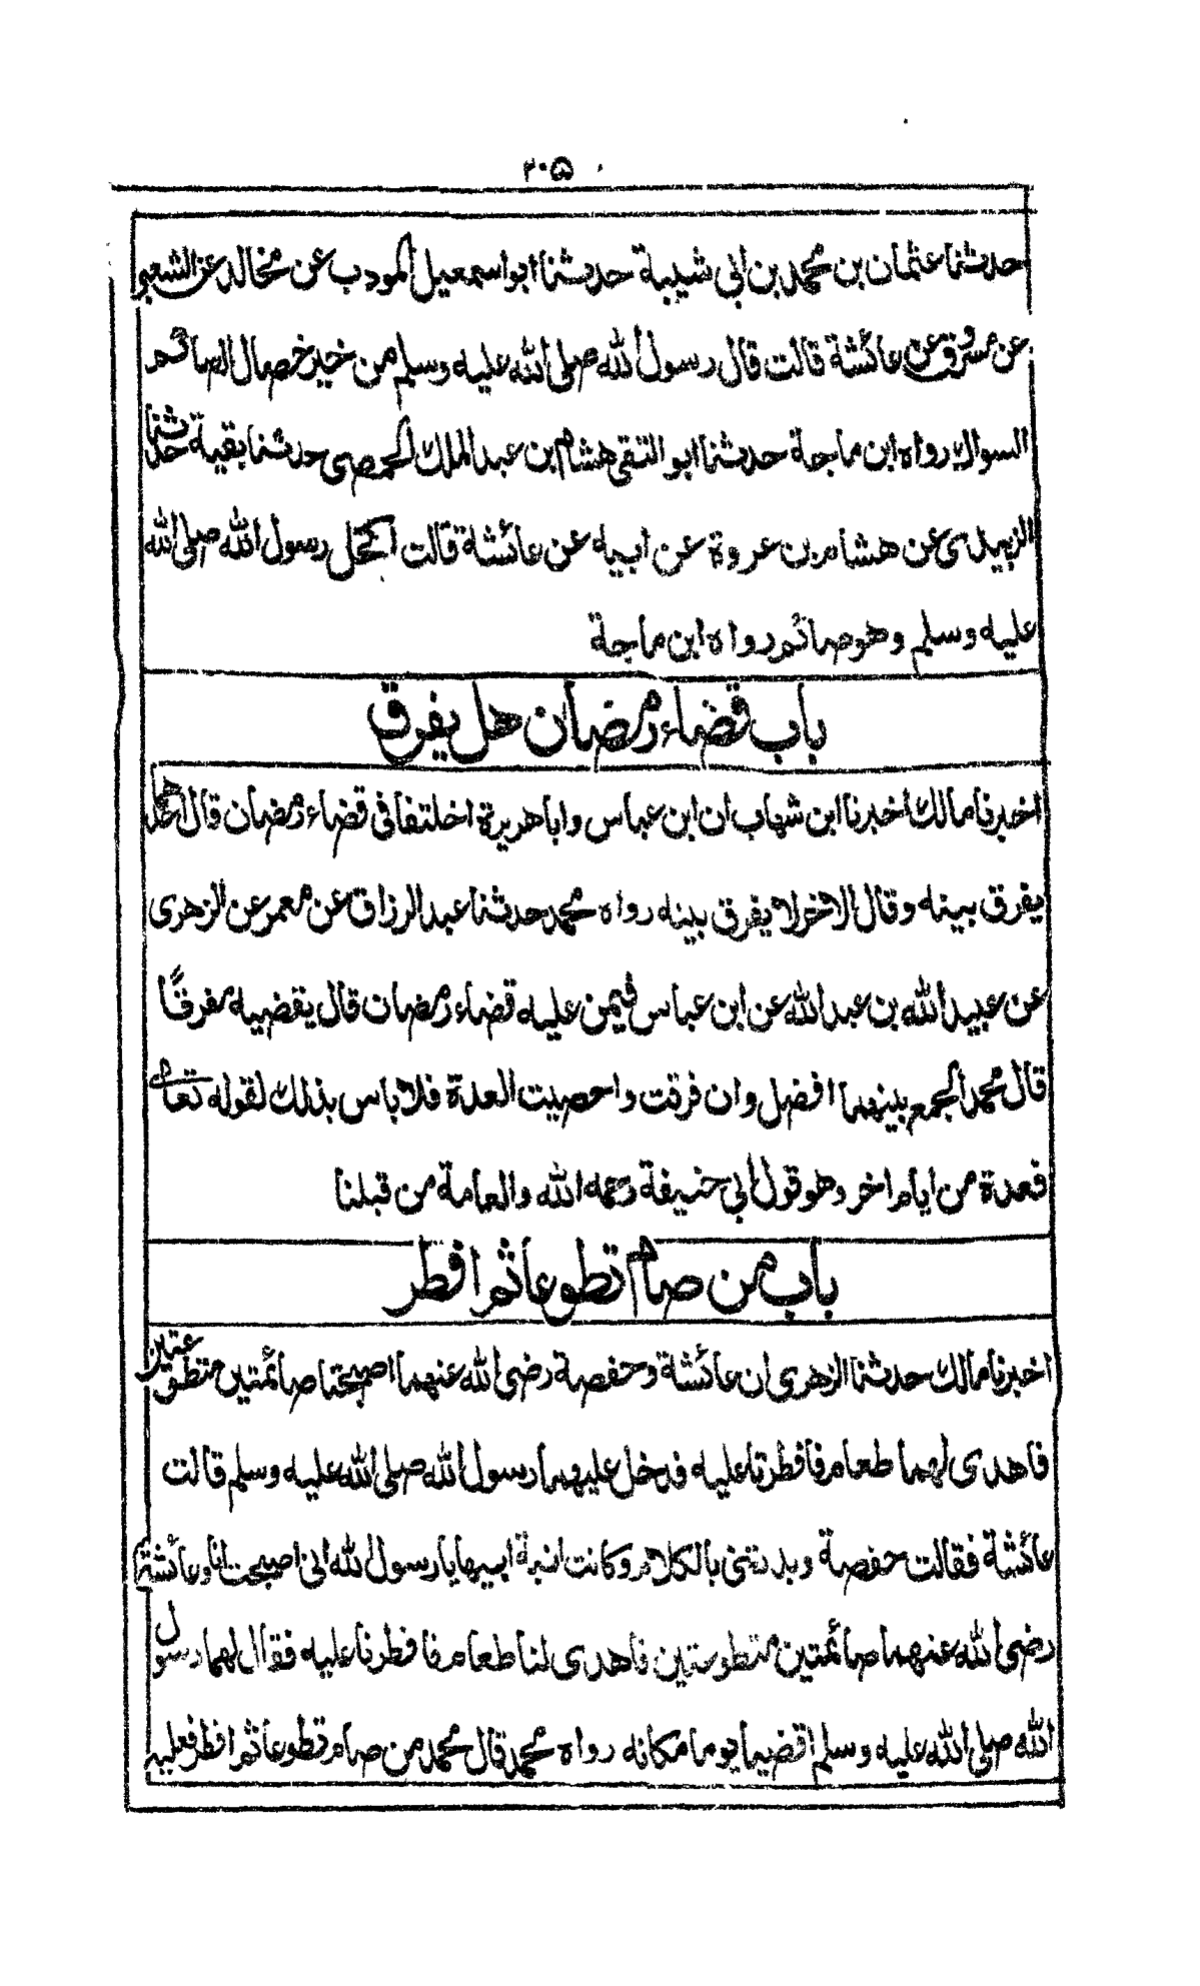 ۲۰۵
حدثنا عثمان بن محمد بن ابی شیبة حدثنا ابو اسمعیل المودب عن مخالد عن الشعبی
عن مسروق عن عائشة قالت قال رسول الله صلی الله علیه وسلم من خیر خصال الصائم
السواك رواه ابن ماجة حدثنا ابو التقی هشام بن عبد الملك الحمصی حدثنا بقیة حدثنا
الزبیدی عن هشام بن عروة عن ابیه عن عائشة قالت اکتحل رسول الله صلی الله
علیه وسلم وهو صائم رواه ابن ماجة
باب قضاء رمضان هل یفرق
اخبرنا مالك اخبرنا ابن شهاب ان ابن عباس وابا هریرة اختلفا فی قضاء رمضان قال احدهما
یفرق بینه وقال الاخر لا یفرق بینه رواه محمد حدثنا عبد الرزاق عن معمر عن الزهری
عن عبید الله بن عبد الله عن ابن عباس فیمن علیه قضاء رمضان قال یقضیه مفرقًا
قال محمد الجمع بینهما افضل وان فرقت واحصیت العدة فلا باس بذلك لقوله تعالی
فعدة من ایام اخر وهو قول ابی حنیفة رحمه الله والعامة من قبلنا
باب من صام تطوعا ثم افطر
اخبرنا مالك حدثنا الزهری ان عائشة وحفصة رضی الله عنهما اصبحتا صائمتین متطوعتین
فاهدی لهما طعام فافطرتا علیه فدخل علیهما رسول الله صلی الله علیه وسلم قالت
عائشة فقالت حفصة وبدرتنی بالکلام وکانت ابنة ابیها یا رسول الله انی اصبحت انا وعائشة
رضی الله عنهما صائمتین متطوعتین فاهدی لنا طعام فافطرنا علیه فقال لهما رسول
الله صلی الله علیه وسلم اقضیا یوما مکانه رواه محمد قال محمد من صام تطوعا ثم افطر فعلیه